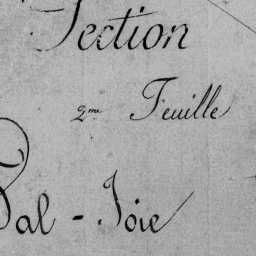 Section
2me Feuille
Bal - Joie